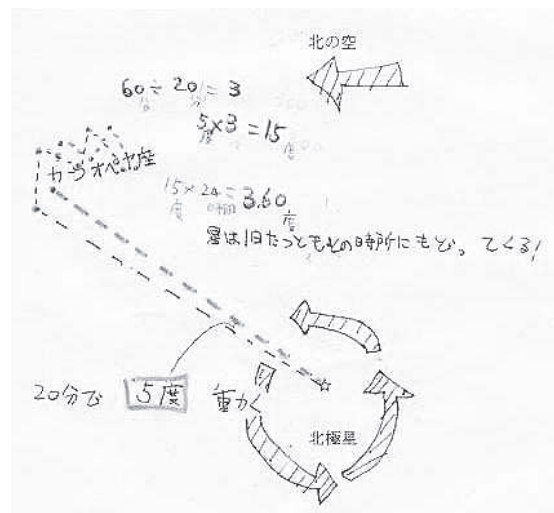 北の空
60÷20=3
分 分
5×3=15
度 度
カシオペヤ座
15×24=360
度 時間 度
星は1日たつともとの時所にもどってくる!
20分で 5度 動く
北極星